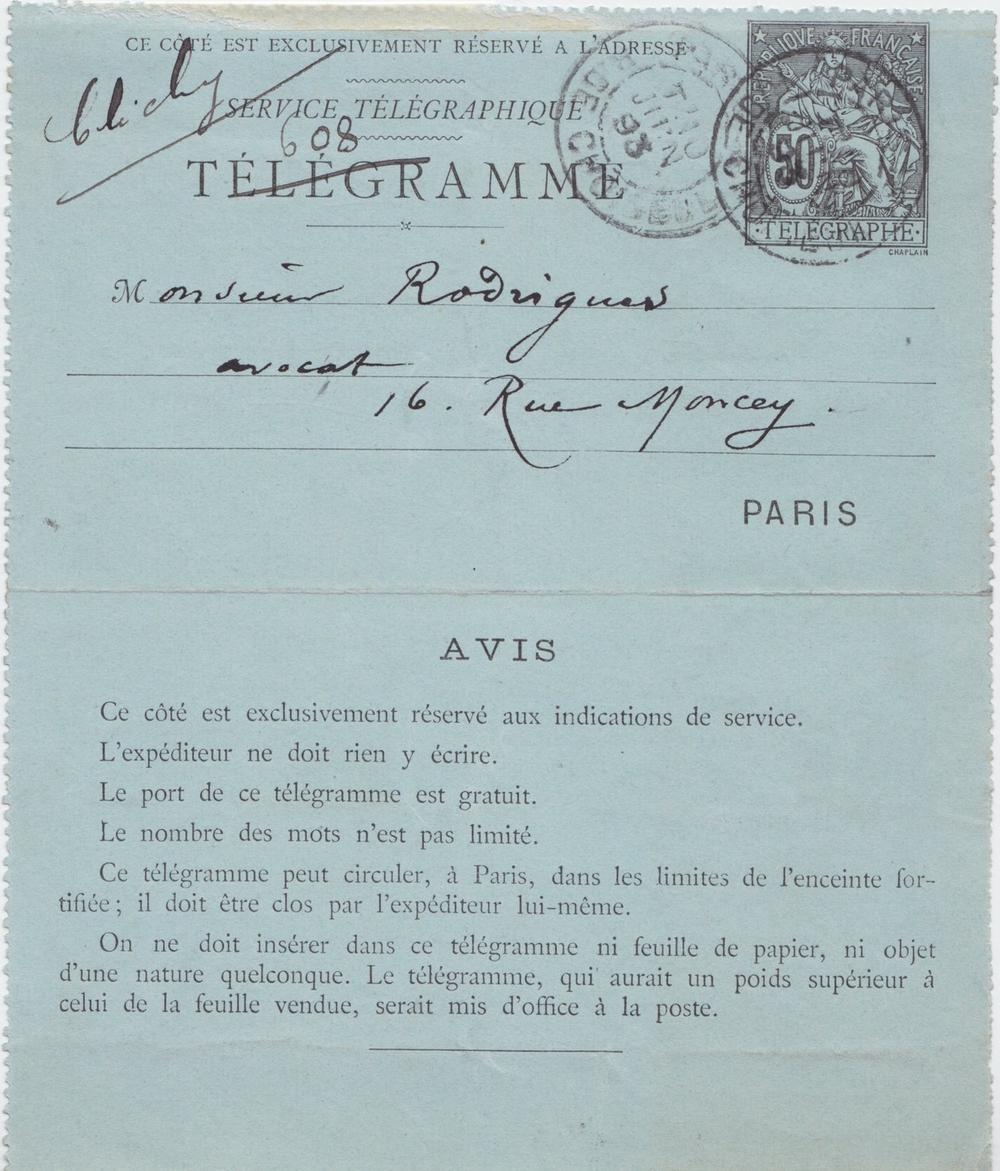 CE CÔTÉ EST EXCLUSIVEMENT RÉSERVÉ A L'ADRESSE
Clichy
SERVICE TÉLÉGRAPHIQUE
608
TÉLÉGRAMME
RÉPUBLIQUE FRANÇAISE
50
TELEGRAPHE
CHAPLAIN
JUIN
93
Monsieur Rodrigues
avocat
16. Rue Moncey.
PARIS
AVIS
Ce côté est exclusivement réservé aux indications de service.
L'expéditeur ne doit rien y écrire.
Le port de ce télégramme est gratuit.
Le nombre des mots n'est pas limité.
Ce télégramme peut circuler, à Paris, dans les limites de l'enceinte for-
tifiée; il doit être clos par l'expéditeur lui-même.
On ne doit insérer dans ce télégramme ni feuille de papier, ni objet
d'une nature quelconque. Le télégramme, qui aurait un poids supérieur à
celui de la feuille vendue, serait mis d'office à la poste.